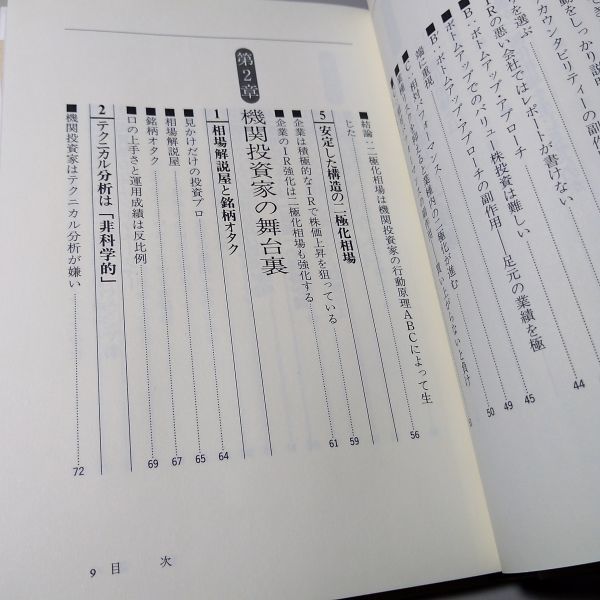 できる
動をしっかり説明
カウンタビリティーの副作
を選ぶ
■IRの悪い会社ではレポートが書けない 44
B：ボトムアップ・アプローチ
■ボトムアップでのバリュー株投資は難しい 45
B'：ボトムアップ・アプローチの副作用 足元の業績を極
端に重視 49
50
■結論：二極化相場は機関投資家の行動原理ABCによって生
じた 56
5 安定した構造の二極化相場 59
■企業は積極的なIRで株価上昇を狙っている
■企業のIR強化は二極化相場も強化する 61
第2章
機関投資家の舞台裏
1 相場解説屋と銘柄オタク 64
■見かけだけの投資プロ 65
■相場解説屋 67
■銘柄オタク 69
■口の上手さと運用成績は反比例
2 テクニカル分析は「非科学的」
■機関投資家はテクニカル分析が嫌い 72
9 目 次